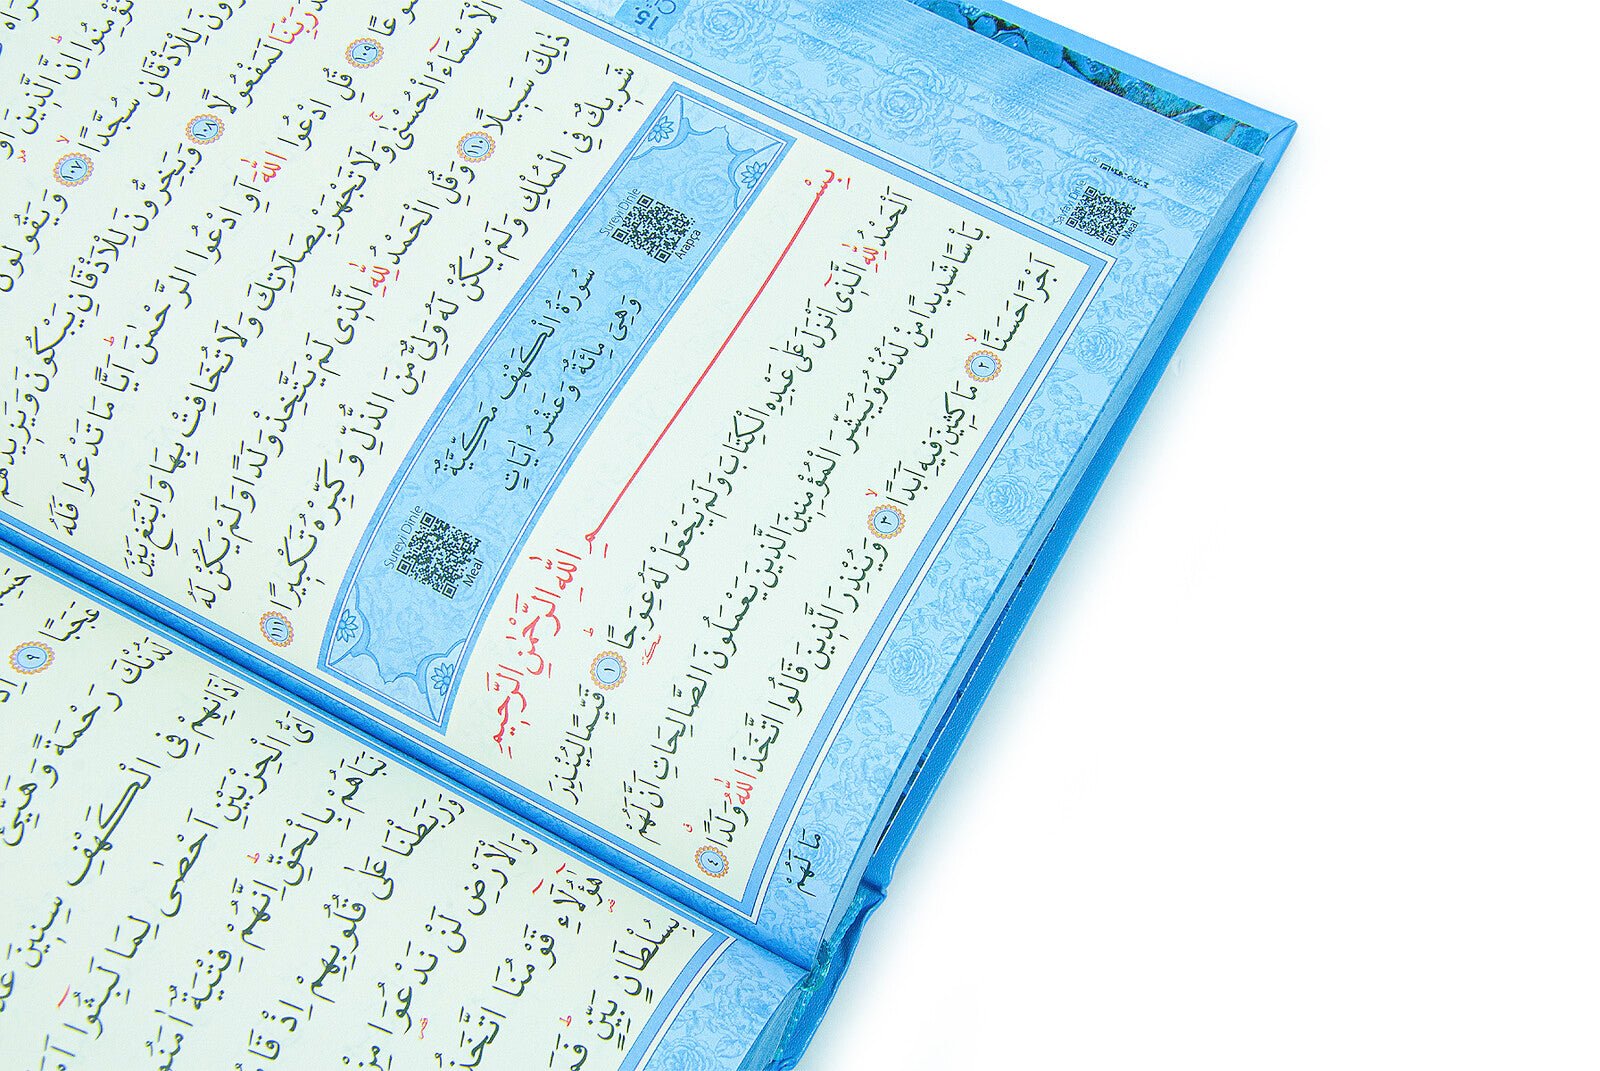 تُؤْمِنُوا اِنَّ الَّذِينَ اُو
لِلْاَذْقَانِ سُجَّدًا ١٠٧ وَيَقُولُونَ
رَبِّنَا لَمَفْعُولًا ١٠٨ وَيَخِرُّونَ لِلْاَذْقَانِ يَبْكُونَ وَيَزِيدُهُمْ
١٠٩ قُلِ ادْعُوا اللّٰهَ اَوِ ادْعُوا الرَّحْمٰنَ اَيًّا مَا تَدْعُوا فَلَهُ
الْاَسْمَاءُ الْحُسْنٰى وَلَا تَجْهَرْ بِصَلَاتِكَ وَلَا تُخَافِتْ بِهَا وَابْتَغِ بَيْنَ
ذٰلِكَ سَبِيلًا ١١٠ وَقُلِ الْحَمْدُ لِلّٰهِ الَّذِى لَمْ يَتَّخِذْ وَلَدًا وَلَمْ يَكُنْ لَهُ
شَرِيكٌ فِى الْمُلْكِ وَلَمْ يَكُنْ لَهُ وَلِىٌّ مِنَ الذُّلِّ وَكَبِّرْهُ تَكْبِيرًا ١١١
Sureyi Dinle
Arapça
سُورَةُ الْكَهْفِ مَكِّيَّةٌ
وَهِىَ مِائَةٌ وَعَشْرُ اٰيَاتٍ
Sureyi Dinle
Meal
بِسْمِ اللّٰهِ الرَّحْمٰنِ الرَّحِيمِ
اَلْحَمْدُ لِلّٰهِ الَّذِى اَنْزَلَ عَلٰى عَبْدِهِ الْكِتَابَ وَلَمْ يَجْعَلْ لَهُ عِوَجًا ١ قَيِّمًا لِيُنْذِرَ
بَاْسًا شَدِيدًا مِنْ لَدُنْهُ وَيُبَشِّرَ الْمُؤْمِنِينَ الَّذِينَ يَعْمَلُونَ الصَّالِحَاتِ اَنَّ لَهُمْ
اَجْرًا حَسَنًا ٢ مَاكِثِينَ فِيهِ اَبَدًا ٣ وَيُنْذِرَ الَّذِينَ قَالُوا اتَّخَذَ اللّٰهُ وَلَدًا ٤
مَا لَهُمْ
Meal
عَجَبًا ٩ اِذْ
لَدُنْكَ رَحْمَةً وَهَيِّئْ
اٰذَانِهِمْ فِى الْكَهْفِ سِنِينَ
اَىُّ الْحِزْبَيْنِ اَحْصٰى لِمَا لَبِثُوا
نَبَاَهُمْ بِالْحَقِّ اِنَّهُمْ فِتْيَةٌ اٰمَنُوا
وَرَبَطْنَا عَلٰى قُلُوبِهِمْ اِذْ قَامُوا
وَالْاَرْضِ لَنْ نَدْعُوَا مِنْ
هٰؤُلَاءِ قَوْمُنَا اتَّخَذُوا
بِسُلْطَانٍ بَيِّنٍ فَمَنْ